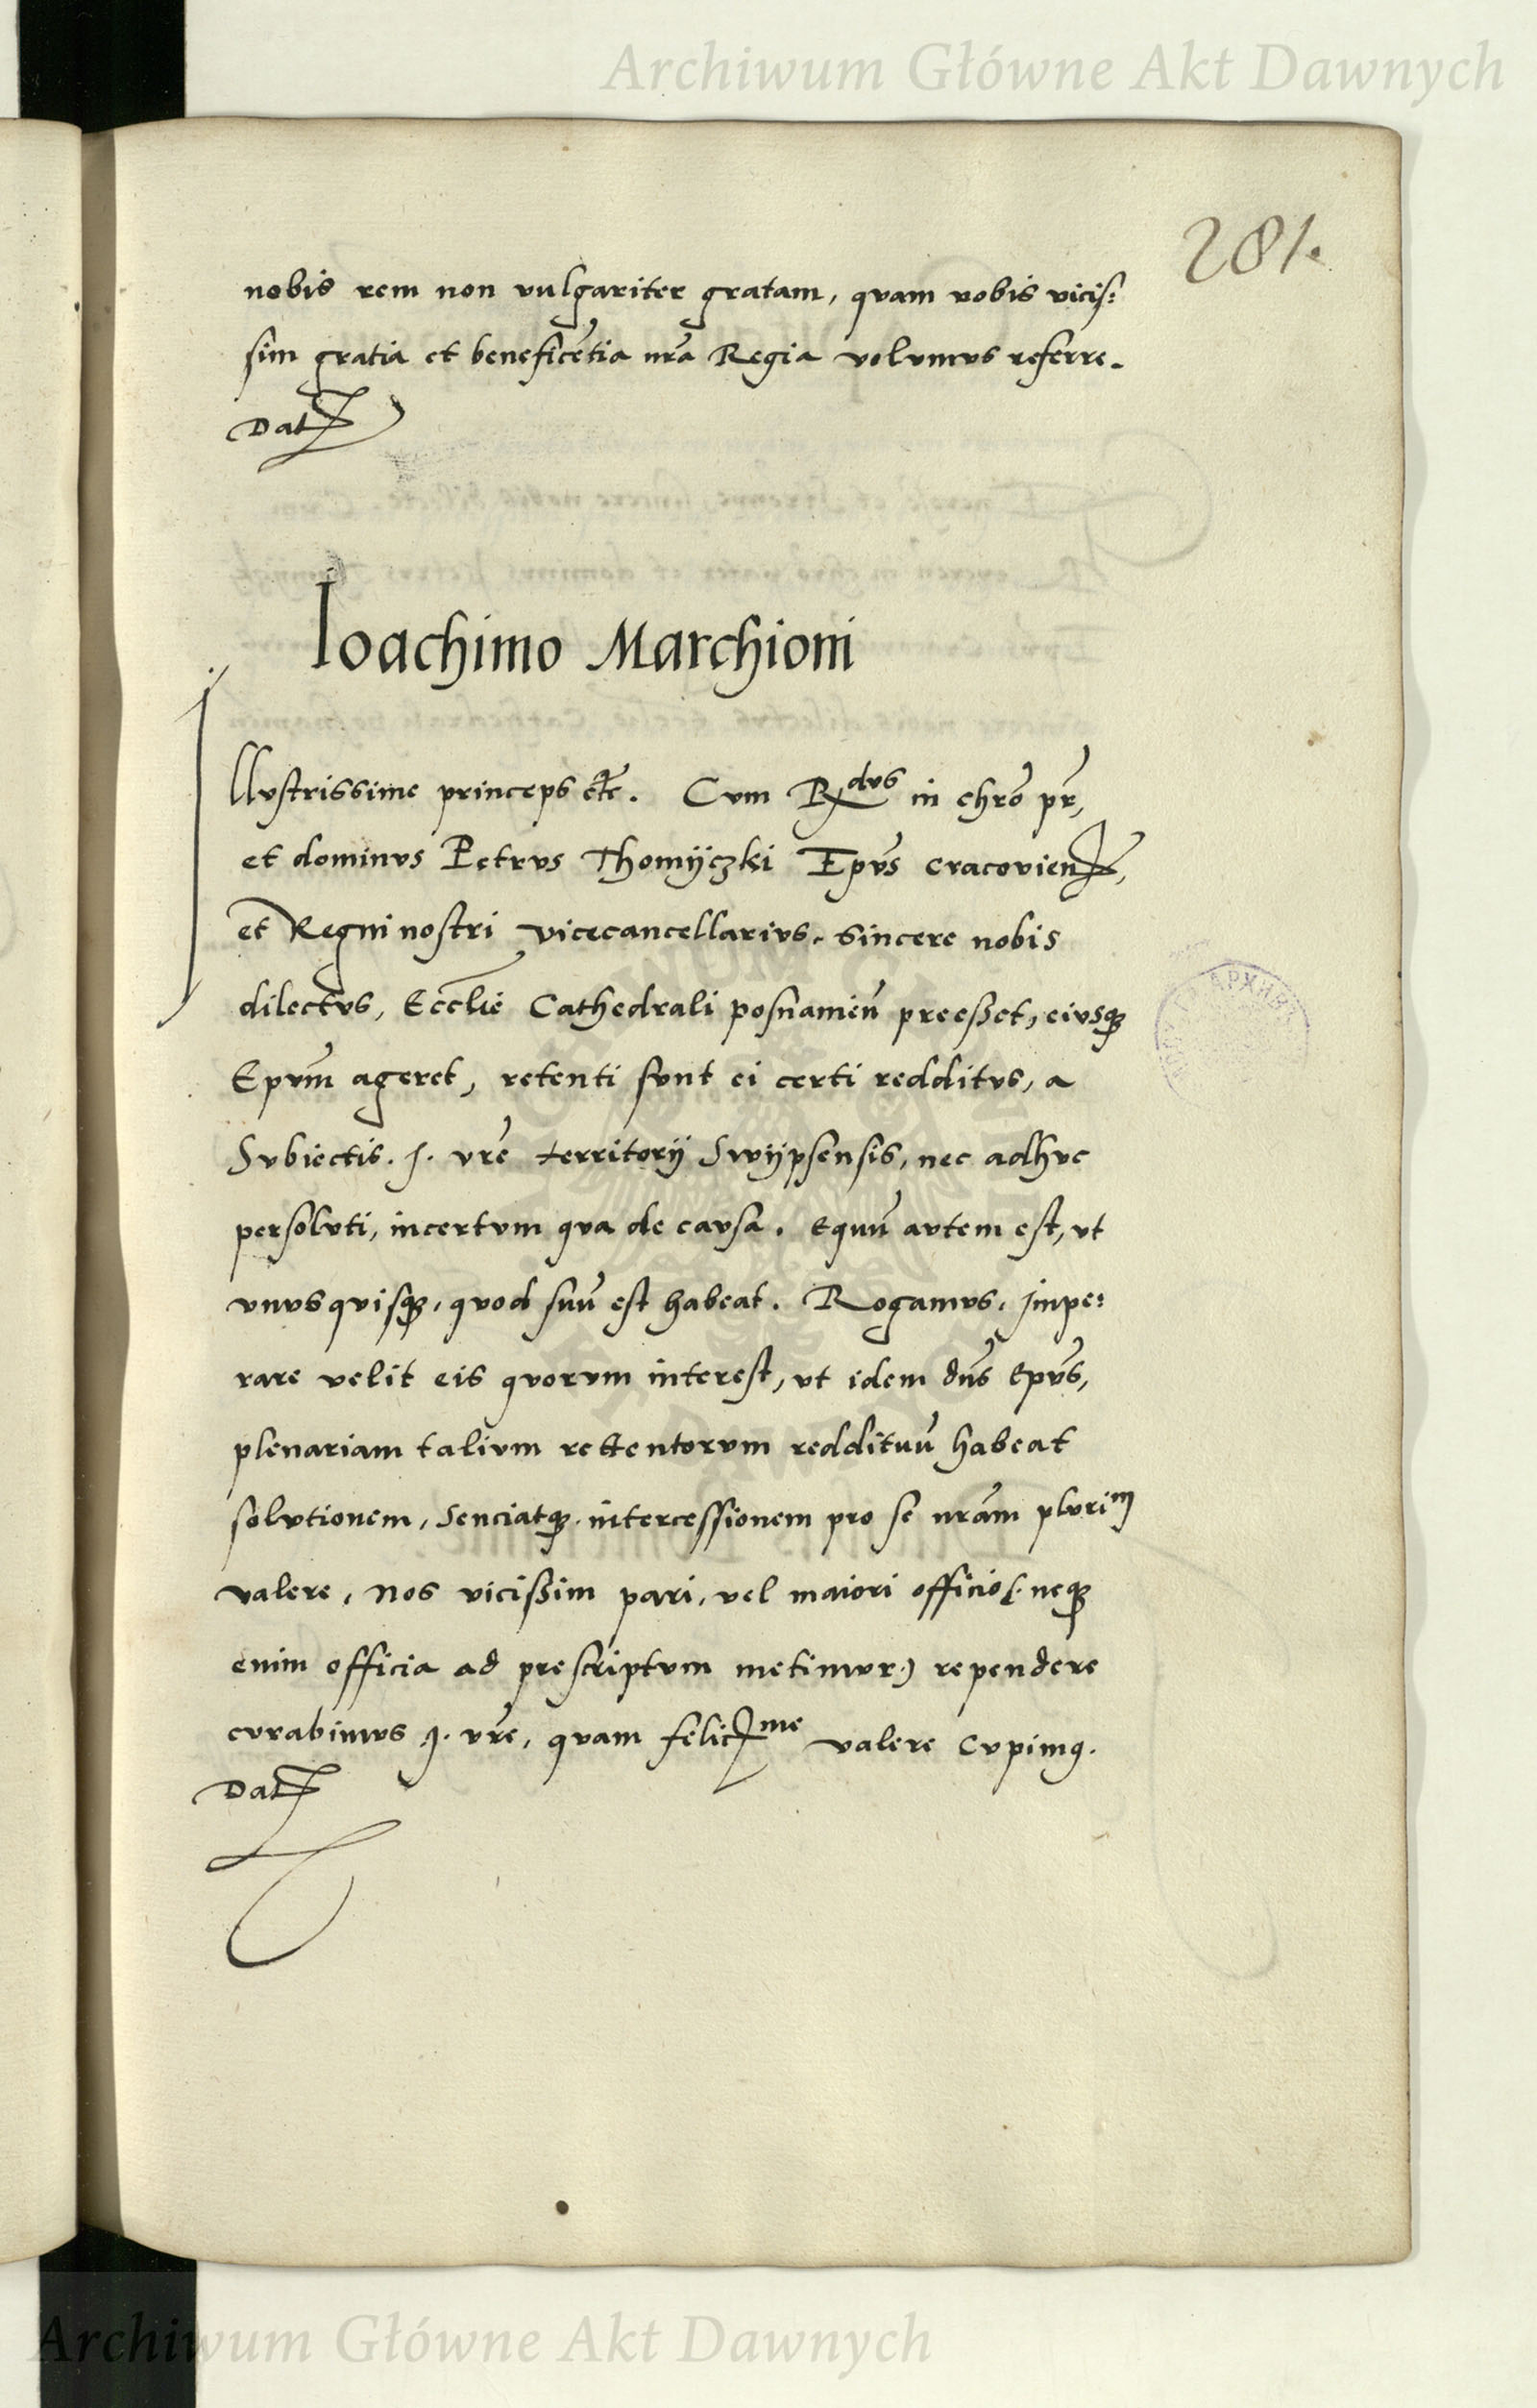 Archiwum Główne Akt Dawnych
281.
nobis rem non vulgariter gratam, quam vobis vicis:
sim gratia et beneficẽtia nrã Regia volumus referre.
Dat
Ioachimo Marchioni
Illustrissime princeps etc. Cum Rdus in chrõ pr̃,
et dominus Petrus Thomÿczki Epũs cracovien,
et Regni nostri vicecancellarius, sincere nobis
dilectus, Ecclie Cathedrali posnamień preesset, eiusq
Epum ageret, retenti sunt ei certi redditus, a
Subiectis. I. vrẽ territorÿ Swÿpsensis, nec adhuc
persoluti, incertum qua de causa. Equũ autem est, ut
unusquisq, quod suũ est habeat. Rogamus, impe:
rare velit eis quorum interest, ut idem dñs Epũs,
plenariam talium rettentorum reddituũ habeat
solutionem, senciatq intercessionem pro se nrãm plurim
valere, nos vicissim pari, vel maiori officio (neq
enim officia ad prescriptum metimur) rependere
curabimus I. vrẽ, quam felicme valere cupimꝯ.
Dat
Archiwum Główne Akt Dawnych